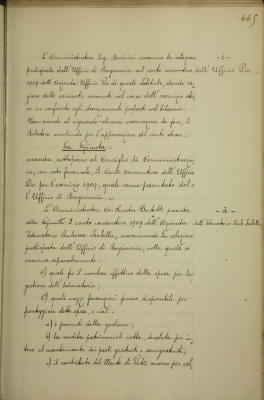 665
L'Amministratore Sig. Bordini riassume la relazione
predisposta dall'Ufficio di Ragioneria sul conto consuntivo dell'Ufficio Pio
1909 dell'Azienda Ufficio Pio di questo Istituto, dando ra-
gione delle varianti avvenute nel corso dell'esercizio stes-
so in confronto agli stanziamenti preposti nel bilancio.
Non avendo al riguardo alcuna osservazione da fare, il
Relatore conclude per l'approvazione del conto stesso;
La Giunta:
manda sottoporre al Consiglio di Amministrazio-
ne, con voto favorevole, il Conto Consuntivo dell'Ufficio
Pio per l'esercizio 1909, quale venne presentato dal-
l'Ufficio di Ragioneria. —
- 2 -
L'Amministratore Cav. Bertetti presenta
alla Giunta il conto consuntivo 1909 dell'Azienda
- 3 -
dell'Educatorio Duch. Isabella
Educatorio Duchessa Isabella, riassumendo la relazione
predisposta dall'Ufficio di Ragioneria, nella quale si
esamina separatamente:
1º) quale fu il montare effettivo della spesa per la
gestione dell'Educatorio;
2º) quali mezzi finanziari furono disponibili per
fronteggiare detta spesa, e cioè:
a) i proventi della gestione;
b) la rendita patrimoniale netta, devoluta per in-
tiero al mantenimento dei posti gratuiti e semigratuiti;
c) il contributo del Monte di Pietà occorso per col-